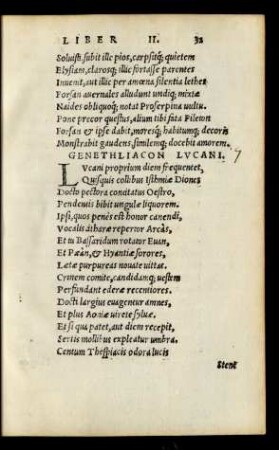 LIBER II. 32
Soluisti, subit ille pios, carpsitq́; quietem
Elysiam, clarosq́; illic fortasse parentes
Inuenit, aut illic per amœna silentia lethes
Forsan auernales alludunt undiq; mixtæ
Naides obliquoq́; notat Proserpina uultu.
Pone precor questus, alium tibi fata Pileton
Forsan & ipse dabit, moresq́; habitumq́; decoris
Monstrabit gaudens, similemq́; docebit amorem.
GENETHLIACON LVCANI. 7
LVcani proprium diem frequentet,
Quisquis collibus Isthmiæ Diones
Docto pectora concitatus Oestro,
Pendentis bibit ungulæ liquorem.
Ipsi, quos penés est honor canendi,
Vocalis citharæ repertor Arcás,
Et tu Bassaridum rotator Euan,
Et Pæán, & Hyantiæ sorores,
Lætæ purpureas nouate uittas.
Crinem comite, candidamq́; uestem
Perfundant ederæ recentiores.
Docti largius euagentur amnes,
Et plus Aoniæ uirete syluæ.
Et si qui patet, aut diem recepit,
Sertis mollibus expleatur umbra.
Centum Thespiacis odora lucis
Stent